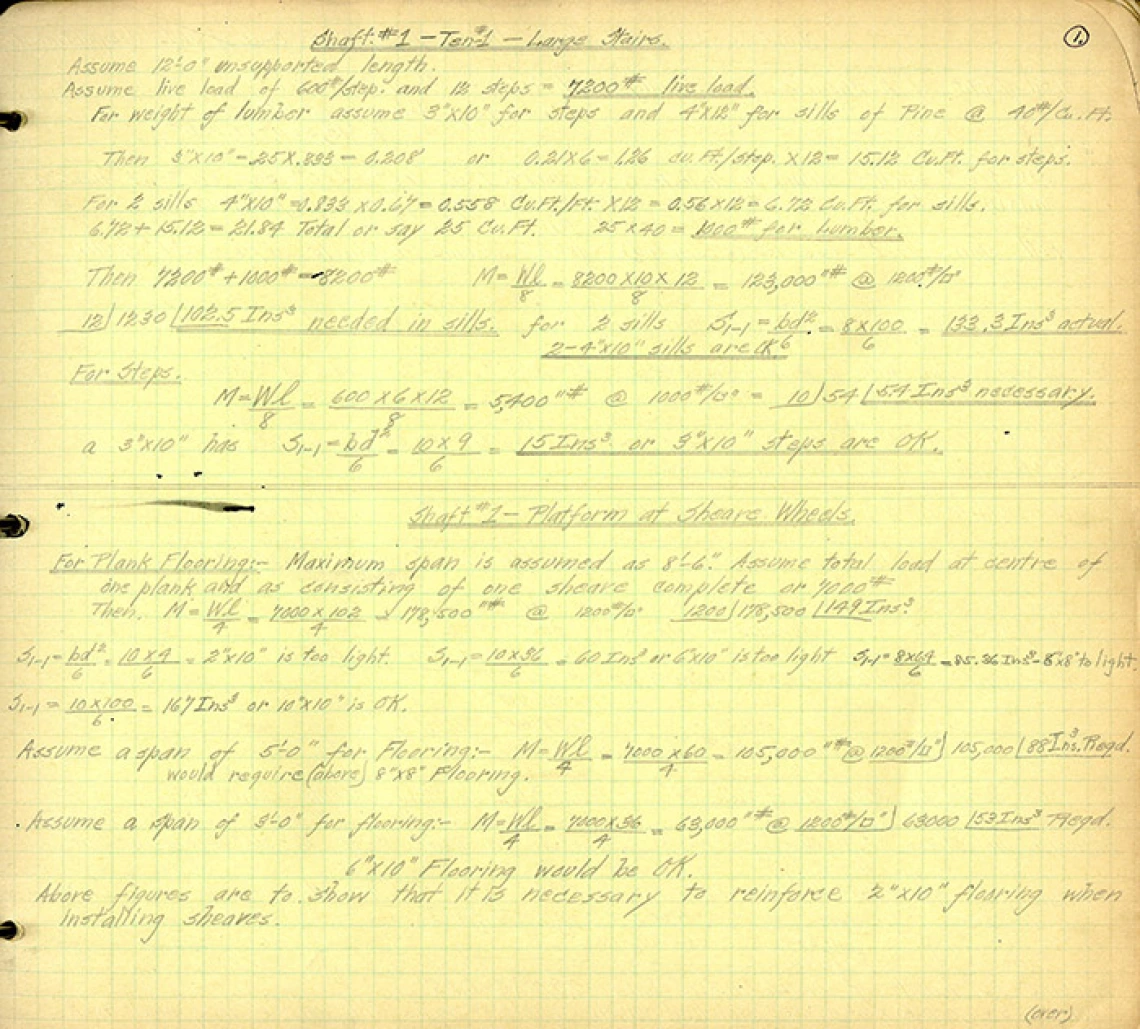 Shaft #1 — Ten-1 — Large Stairs.
1.
Assume 12'-0" unsupported length.
Assume live load of 600#/step. and 12 steps = 7200# live load.
For weight of lumber assume 3"x10" for steps and 4"x12" for sills of Pine @ 40#/Cu.Ft.
Then 3"x10" = .25 x .833 = 0.208' or 0.21x6 = 1.26 cu.Ft./step. x 12 = 15.12 Cu.Ft. for steps.
For 2 sills 4"x10" = 0.833 x 0.67 = 0.558 Cu.Ft./Ft. x12 = 0.56 x 12 = 6.72 Cu.Ft. for sills.
6.72 + 15.12 = 21.84 Total or say 25 Cu.Ft. 25 x 40 = 1000# for Lumber.
Then 7200# + 1000# = 8200# M = Wl/8 = 8200 x 10 x 12/8 = 123,000"# @ 1200#/□"
12)1230(102.5 Ins³ needed in sills. for 2 sills S1-1 = bd²/6 = 8x100/6 = 133.3 Ins³ actual.
2-4"x10" sills are OK
For Steps.
M = Wl/8 = 600 x 6 x 12/8 = 5,400"# @ 1000#/□" = 10)54(5.4 Ins³ necessary.
a 3"x10" has S1-1 = bd²/6 = 10 x 9/6 = 15 Ins³ or 3"x10" steps are OK.
Shaft #1 — Platform at Sheave Wheels.
For Plank Flooring:- Maximum span is assumed as 8'-6". Assume total load at centre of
one plank and as consisting of one sheave complete or 7000#
Then. M = Wl/4 = 7000 x 102/4 = 178,500"# @ 1200#/□" 1200)178,500(149 Ins³
S1-1 = bd²/6 = 10x4/6 = 2"x10" is too light. S1-1 = 10x36/6 = 60 Ins³ or 6"x10" is too light S1-1 = 8x64/6 = 85.36 Ins³ - 8"x8" to light.
S1-1 = 10x100/6 = 167 Ins³ or 10"x10" is OK.
Assume a span of 5'-0" for Flooring:- M = Wl/4 = 7000 x 60/4 = 105,000"# @ 1200#/□") 105,000(88 Ins. Reqd.
would require (above) 8"x8" Flooring.
Assume a span of 3'-0" for flooring:- M = Wl/4 = 7000x36/4 = 63,000"# @ 1200#/□") 63000(53 Ins³ Reqd.
6"x10" Flooring would be OK.
Above figures are to show that it is necessary to reinforce 2"x10" flooring when
installing sheaves.
(over)